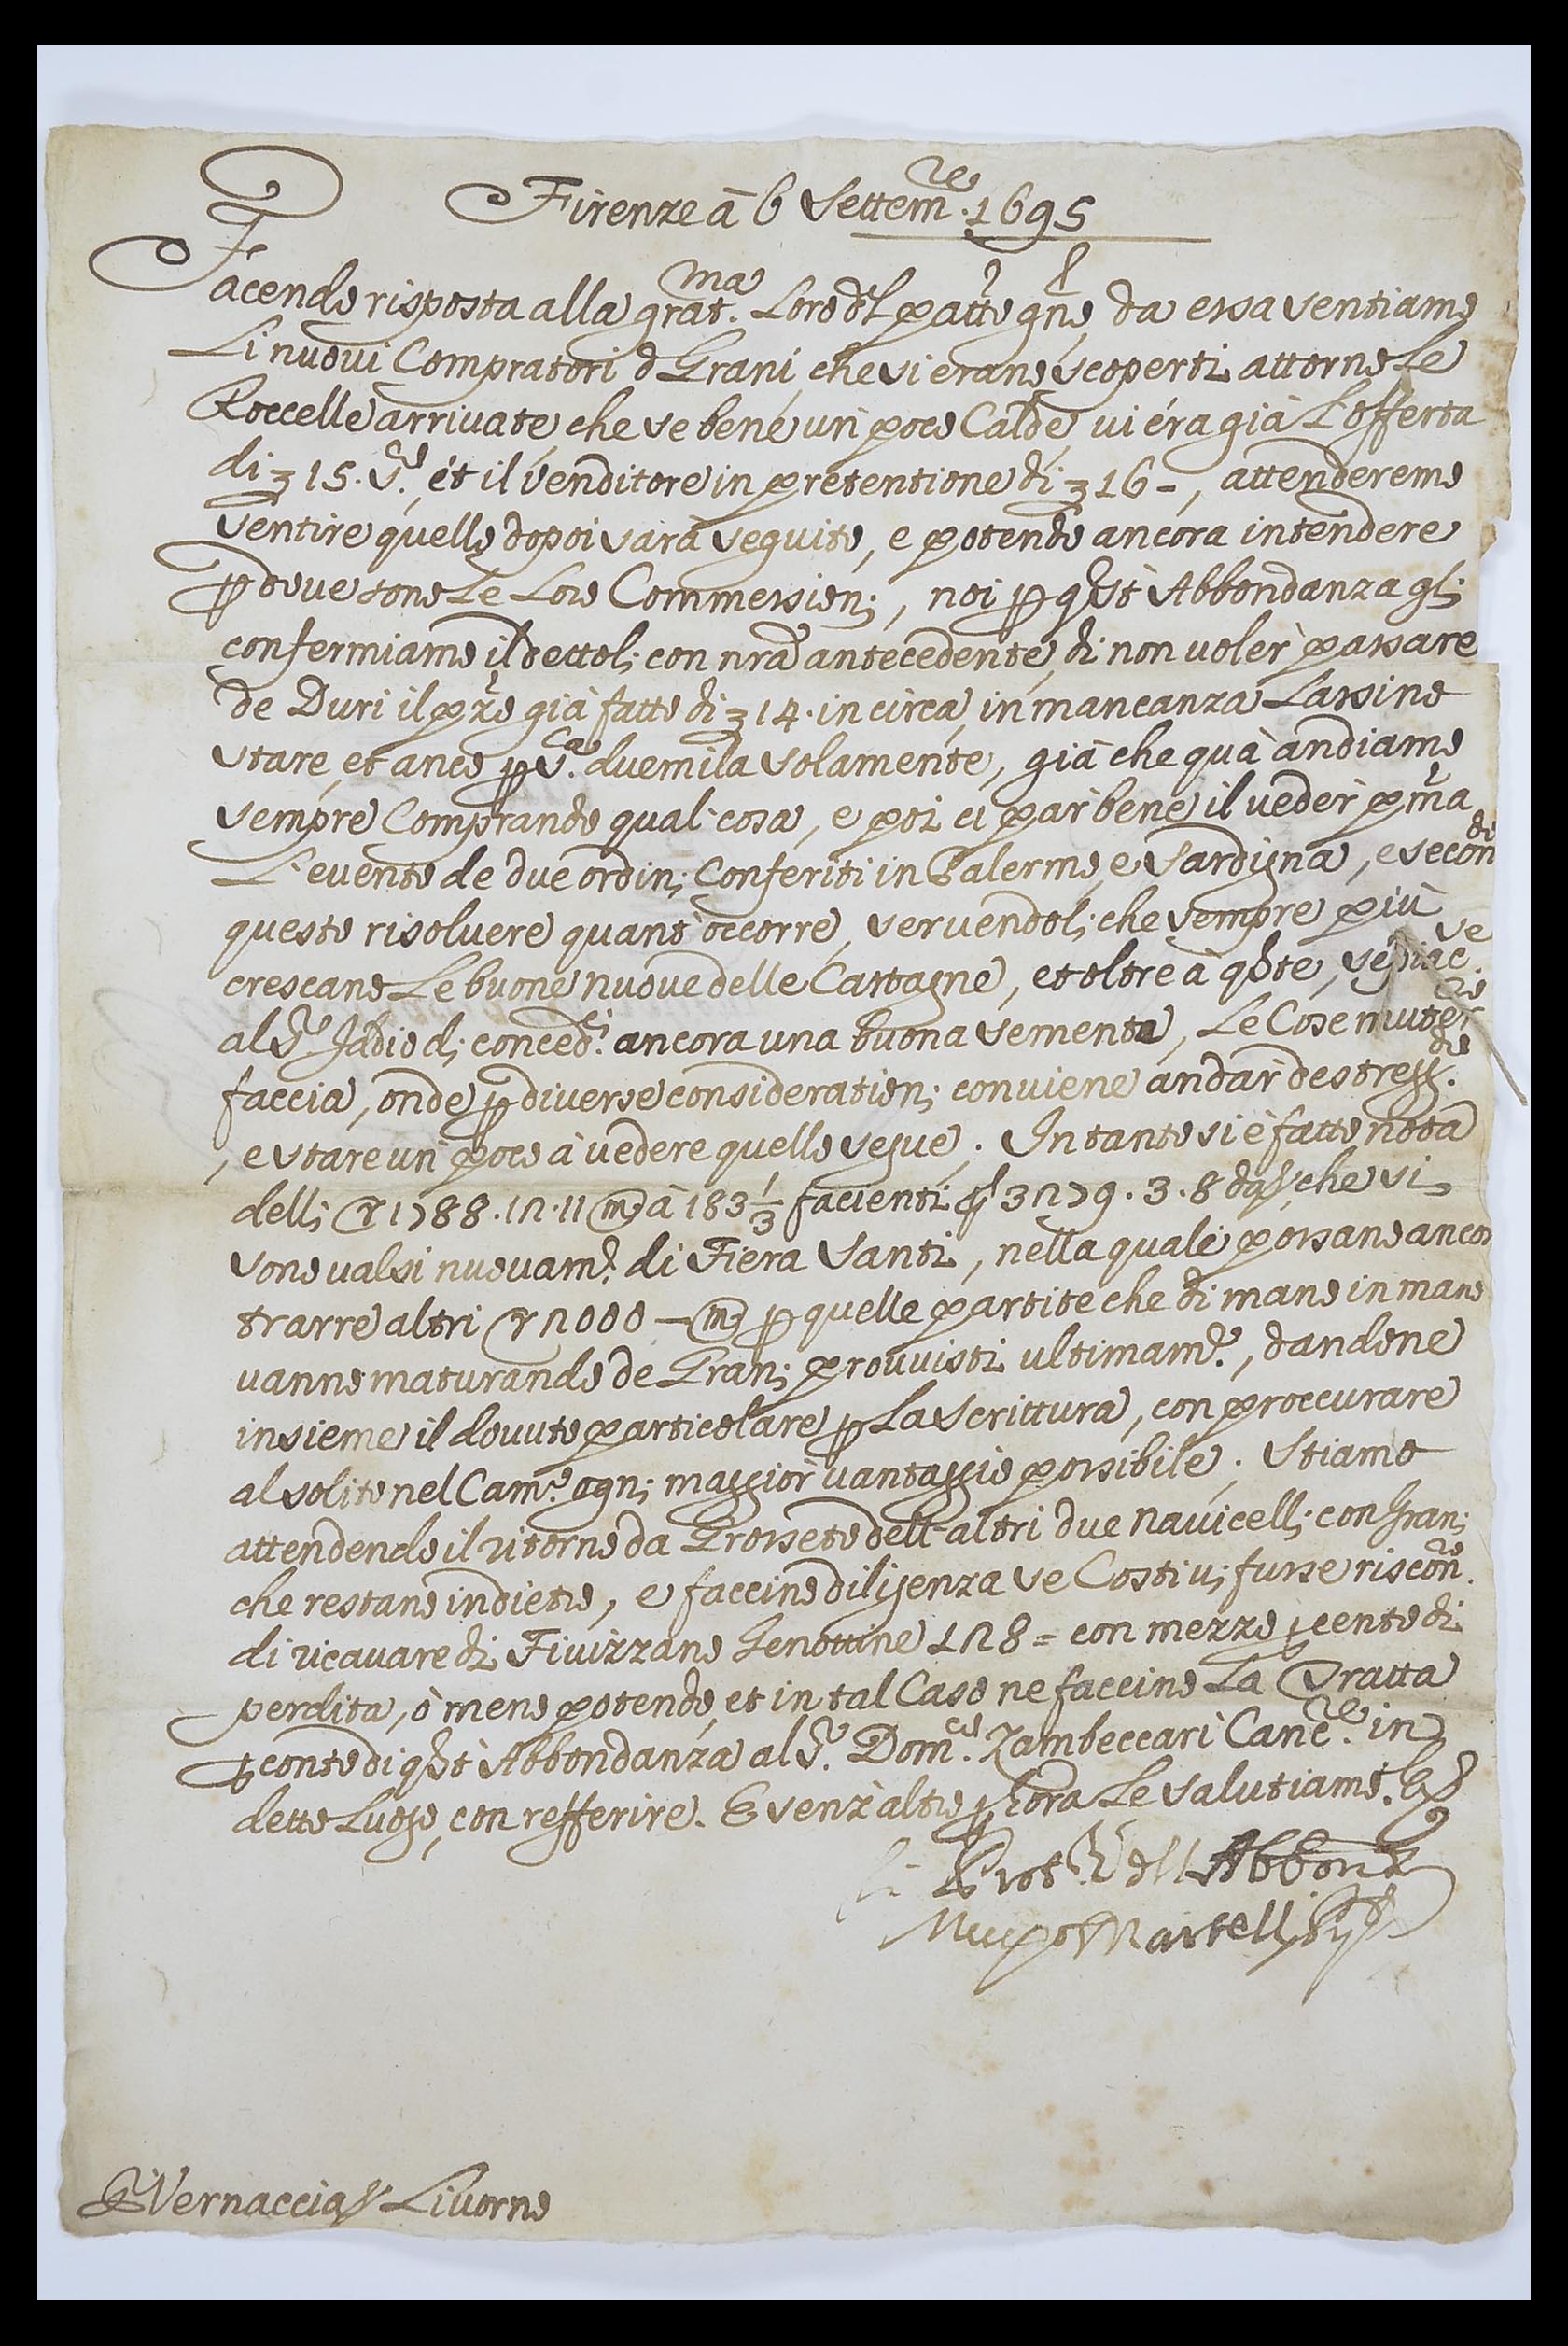 Firenze à 6 Settem.re 1695
Facendo risposta alla grat.ma Loro del patto gno, da essa sentiamo
Li nuovi Compratori d Grani, che si erano scoperti attorno Le
Roccelle arrivate, che se bene un poco Calde, vi éra già L'offerta
di 15. et il Venditore in pretentione di 16 -, attenderemo
sentire quello dopoi sarà seguito, e potendo ancora intendere
p dove sono Le Loro Commessioni, noi p qsta Abbondanza gli
confermiamo il dettoli con nra antecedente, di non voler passare
de Duri il pzo già fatto di 14. in circa, in mancanza Lassino
stare, et anco p s.ca duemila solamente, già che quà andiamo
sempre Comprando qual cosa, e poi ci par bene il veder pma
L'evento de due ordini Conferiti in Palermo, e Sardigna, e secon di
questo risolvere quant'occorre, servendoli che sempre più
crescano Le buone nuove delle Castagne, et oltre à qste, se piac.
al Sr Iddio di conced.ci ancora una buona sementa, Le Cose
faccia, onde p diverse considerationi conviene andar destregg.do
, e stare un poco à vedere quello segue. In tanto si è fatto nota
delli 1788.12.11 m à 183 1/3 facienti 3279.3.8 che si
sono valsi nuovam.e di Fiera Santi, nella quale possano ancor
trarre altri 2000 — m p quelle partite che di mano in mano
vanno maturando de Grani provvisti ultimam.e, dandone
insieme il dovuto particolare p La Scrittura, con proccurare
al solito nel Cam.o ogni maggior vantaggio possibile. Stiamo
attendendo il ritorno da Grosseto dell altri due navicelli con Grani
che restano indietro, e faccino diligenza se Costì vi fusse riscon.ro
di ricavare di Fivizzano Genovine 128 = con mezzo p cento di
perdita, ò meno potendo, et in tal Caso ne faccino La Tratta
p conto di qsta Abbondanza al Sr. Dom.co Zambeccari Canc.re in
detto Luogo, con refferire. E senz'altro p hora Le salutiamo.
Prov.ri dell Abbonza
Martelli
Vernaccia Livorno